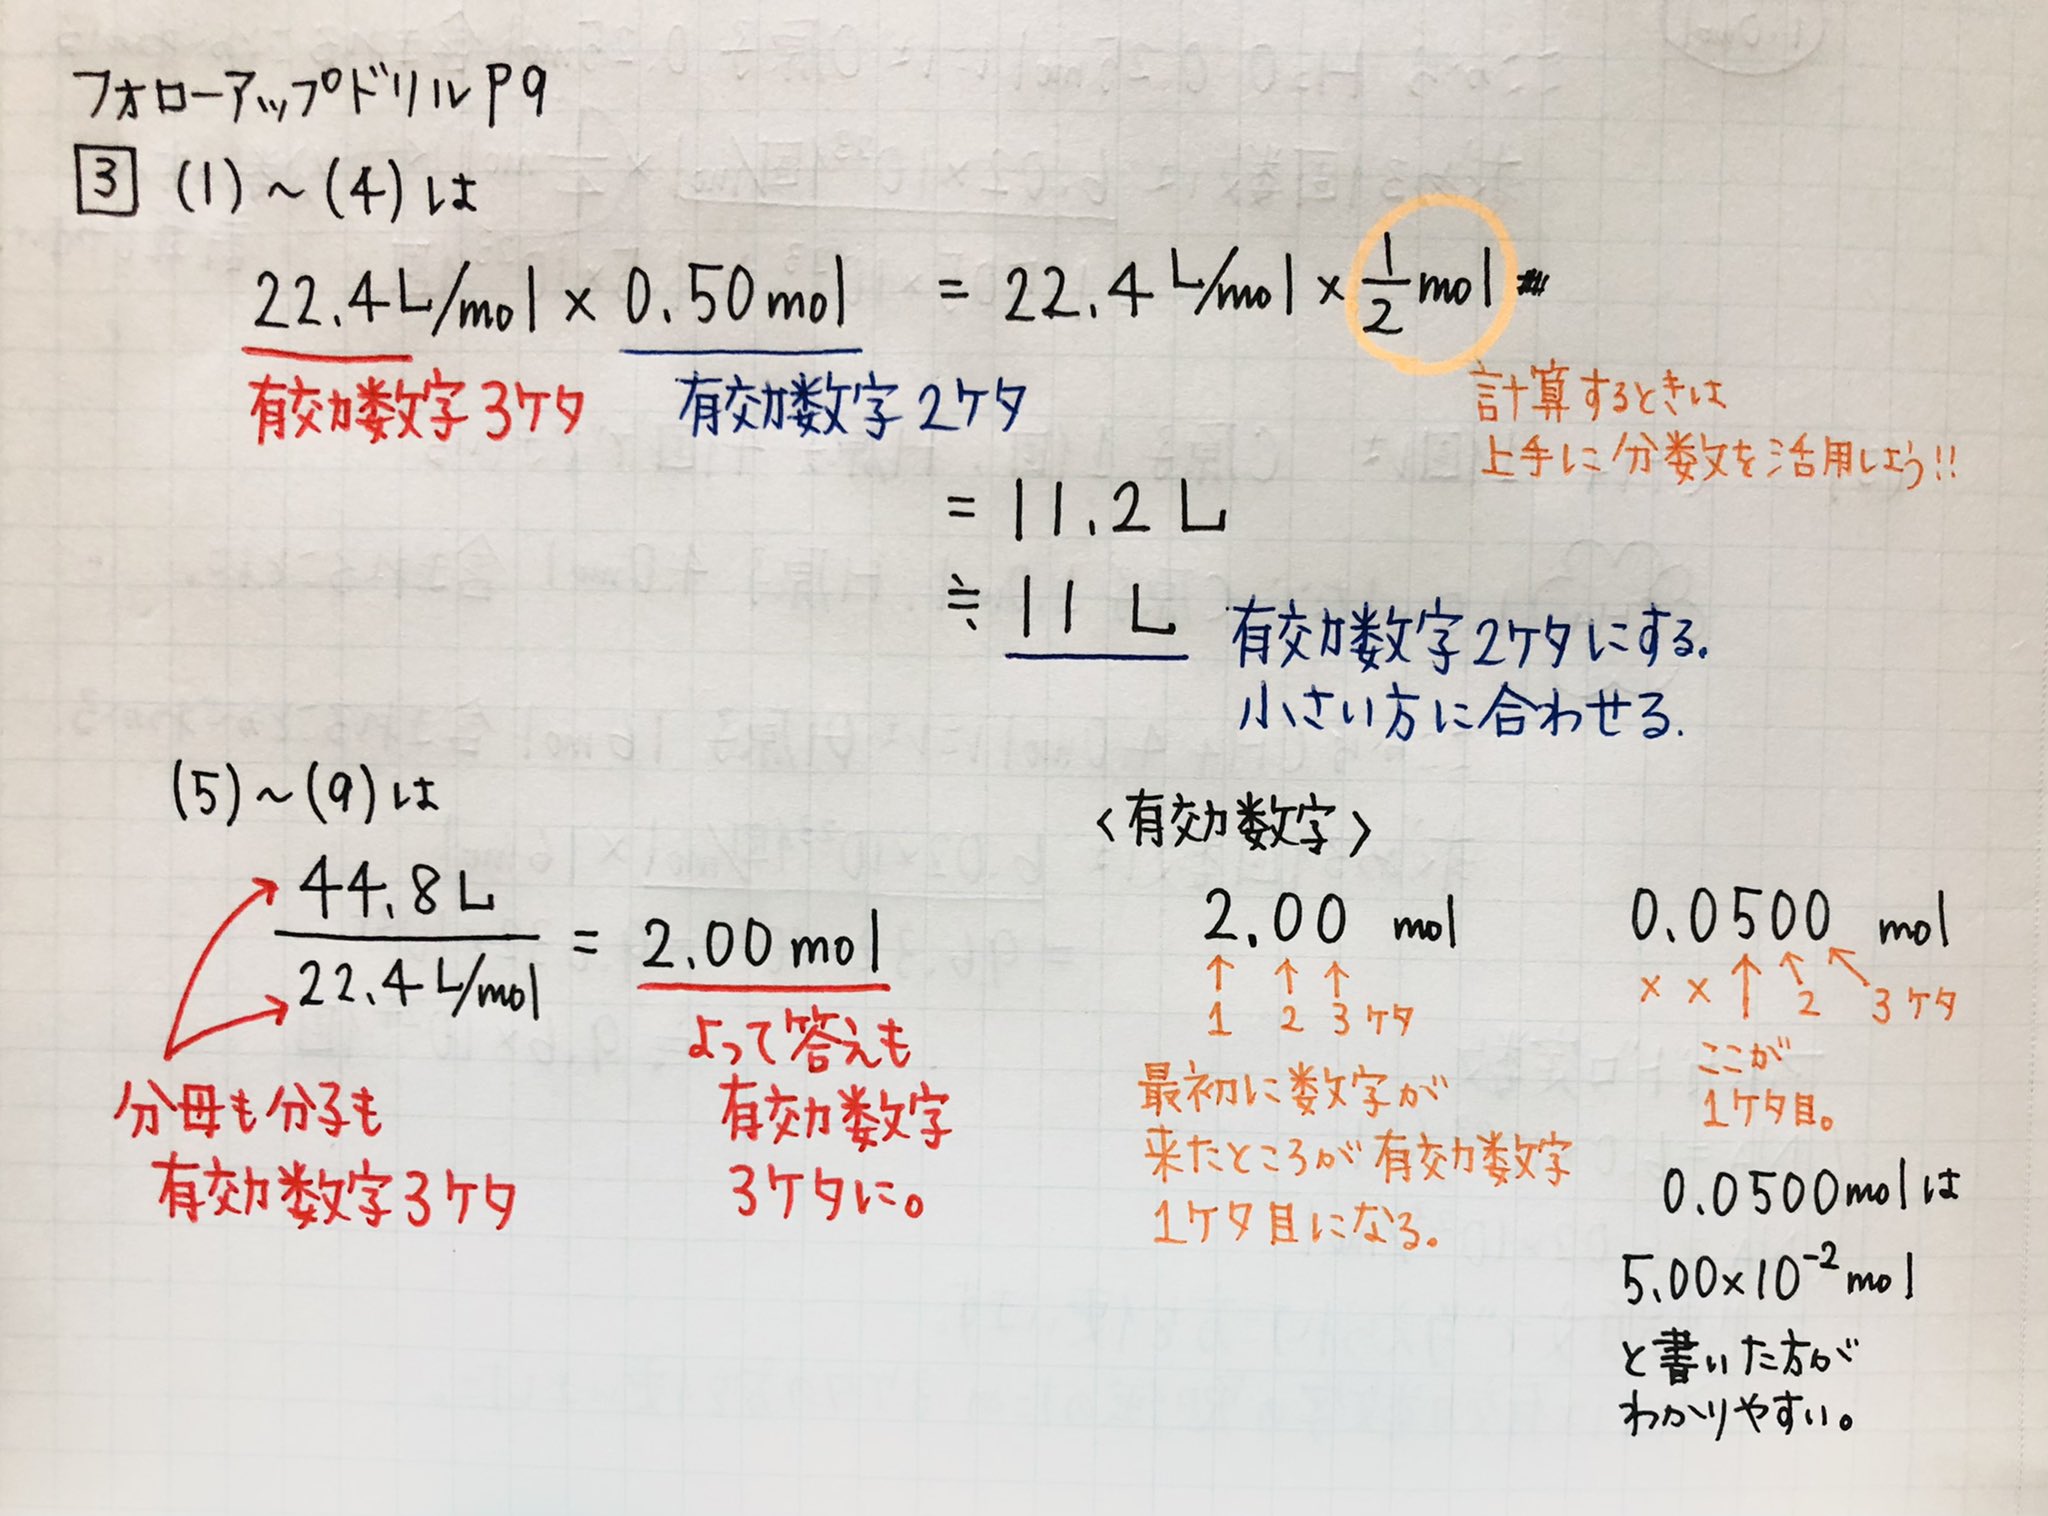 フォローアップドリルP9
3 (1)～(4)は
22.4L/mol × 0.50mol = 22.4L/mol × 1/2 mol
有効数字3ケタ 有効数字2ケタ
計算するときは
上手に分数を活用しよう!!
= 11.2 L
≒ 11 L
有効数字2ケタにする.
小さい方に合わせる.
(5)～(9)は
44.8L
22.4L/mol
= 2.00mol
分母も分子も
有効数字3ケタ
よって答えも
有効数字
3ケタに。
〈有効数字〉
2.00 mol
↑ ↑ ↑
1 2 3ケタ
最初に数字が
来たところが有効数字
1ケタ目になる。
0.0500 mol
× × ↑ 2 3ケタ
ここが
1ケタ目。
0.0500molは
5.00×10⁻²mol
と書いた方が
わかりやすい。